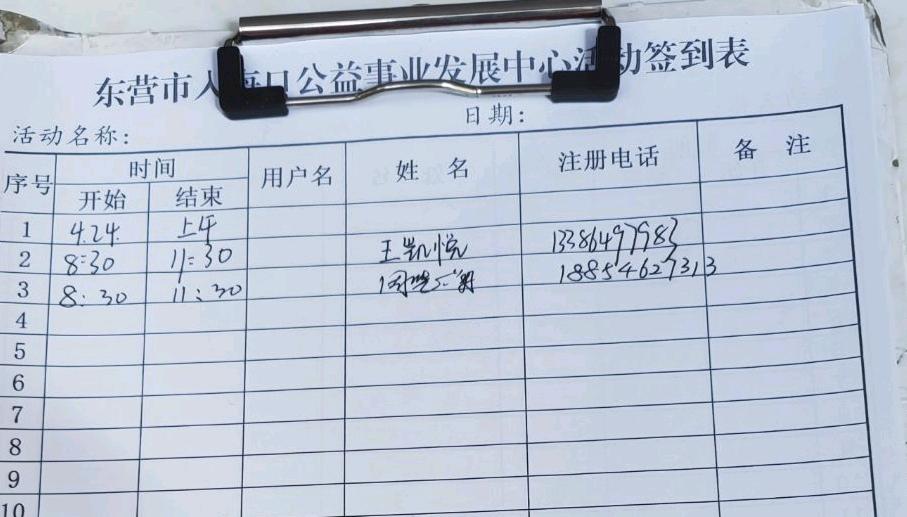 东营市人 口公益事业发展中心活动签到表
活动名称: 日期:
序号 时间 用户名 姓 名 注册电话 备 注
开始 结束
1 4.24. 上午
2 8:30 11:30 王凯悦 13386497983
3 8:30 11:30 18854627313
4
5
6
7
8
9
10